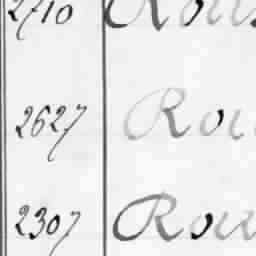 2710 Rou
2627 Rou
2307 Rou